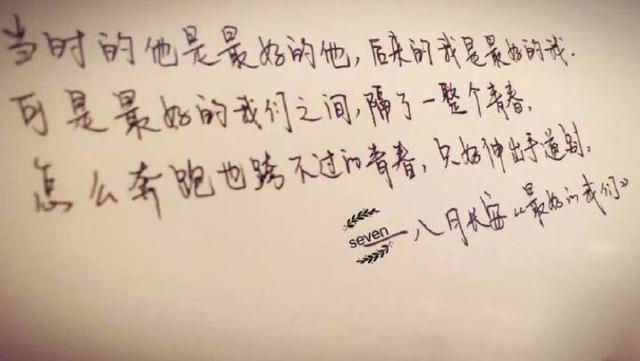 当时的他是最好的他，后来的我是最好的我．
可是最好的我们之间，隔了一整个青春．
怎么奔跑也跨不过的青春，只好伸出手道别．
seven
——八月长安《最好的我们》